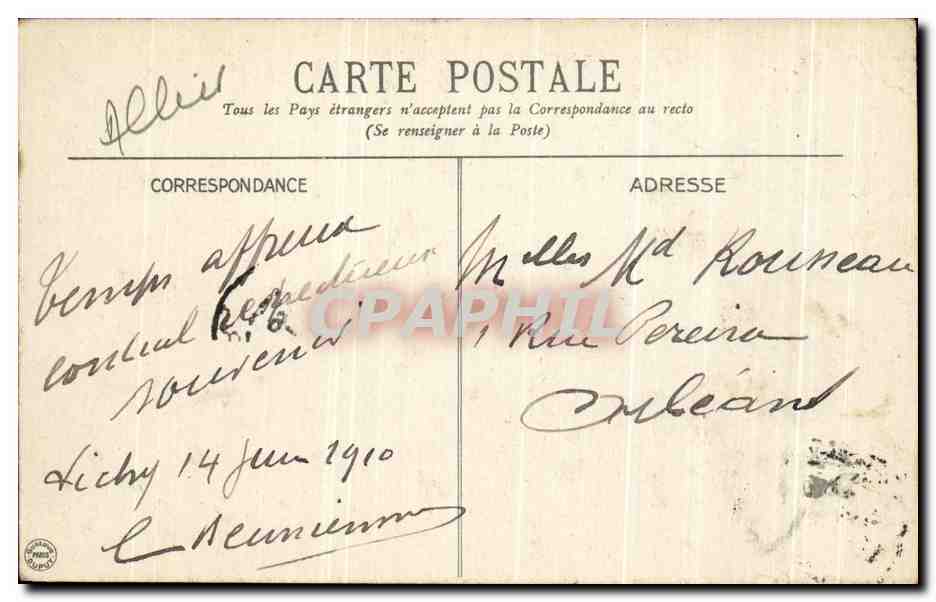 Allier
CARTE POSTALE
Tous les Pays étrangers n'acceptent pas la Correspondance au recto
(Se renseigner à la Poste)
CORRESPONDANCE
Temps affreux
cordial respectueux
souvenir
Vichy 14 Juin 1910
ADRESSE
Melles Md Rousseau
1 Rue Pereira
Orléans
CPAPHIL
PARIS